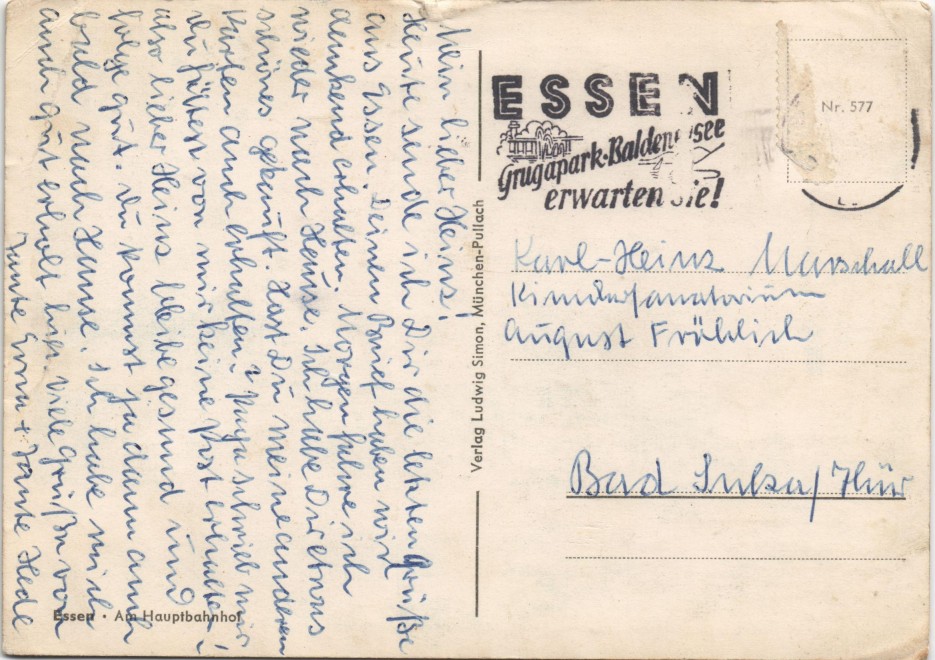 Mein lieber Heinz!
Heute sende ich Dir die letzten Grüße
aus Essen. Deinen Brief haben wir
dankend erhalten. Morgen fahre ich
wieder nach Hause. Ich habe Dir etwas
schönes gekauft. Hast Du meine anderen
Karten auch erhalten? Papa schrieb mir
Du hättest von mir keine Post erhalten!
Also lieber Heinz bleibe gesund und
folge gut. Du kommst ja dann auch
bald nach Hause. Ich habe mich
auch gut erholt hier. Viele Grüße von
Tante Erna + Tante Hede
Essen · Am Hauptbahnhof
Verlag Ludwig Simon, München-Pullach
ESSEN
Grugapark-Baldeneysee
erwarten Sie!
Nr. 577
Karl-Heinz Marschall
Kindersanatorium
August Fröhlich
Bad Sulza/Thür